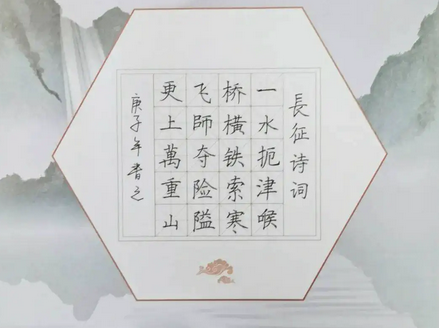 長征诗词
一水扼津喉
桥横铁索寒
飞師夺险隘
更上萬重山
庚子年春之